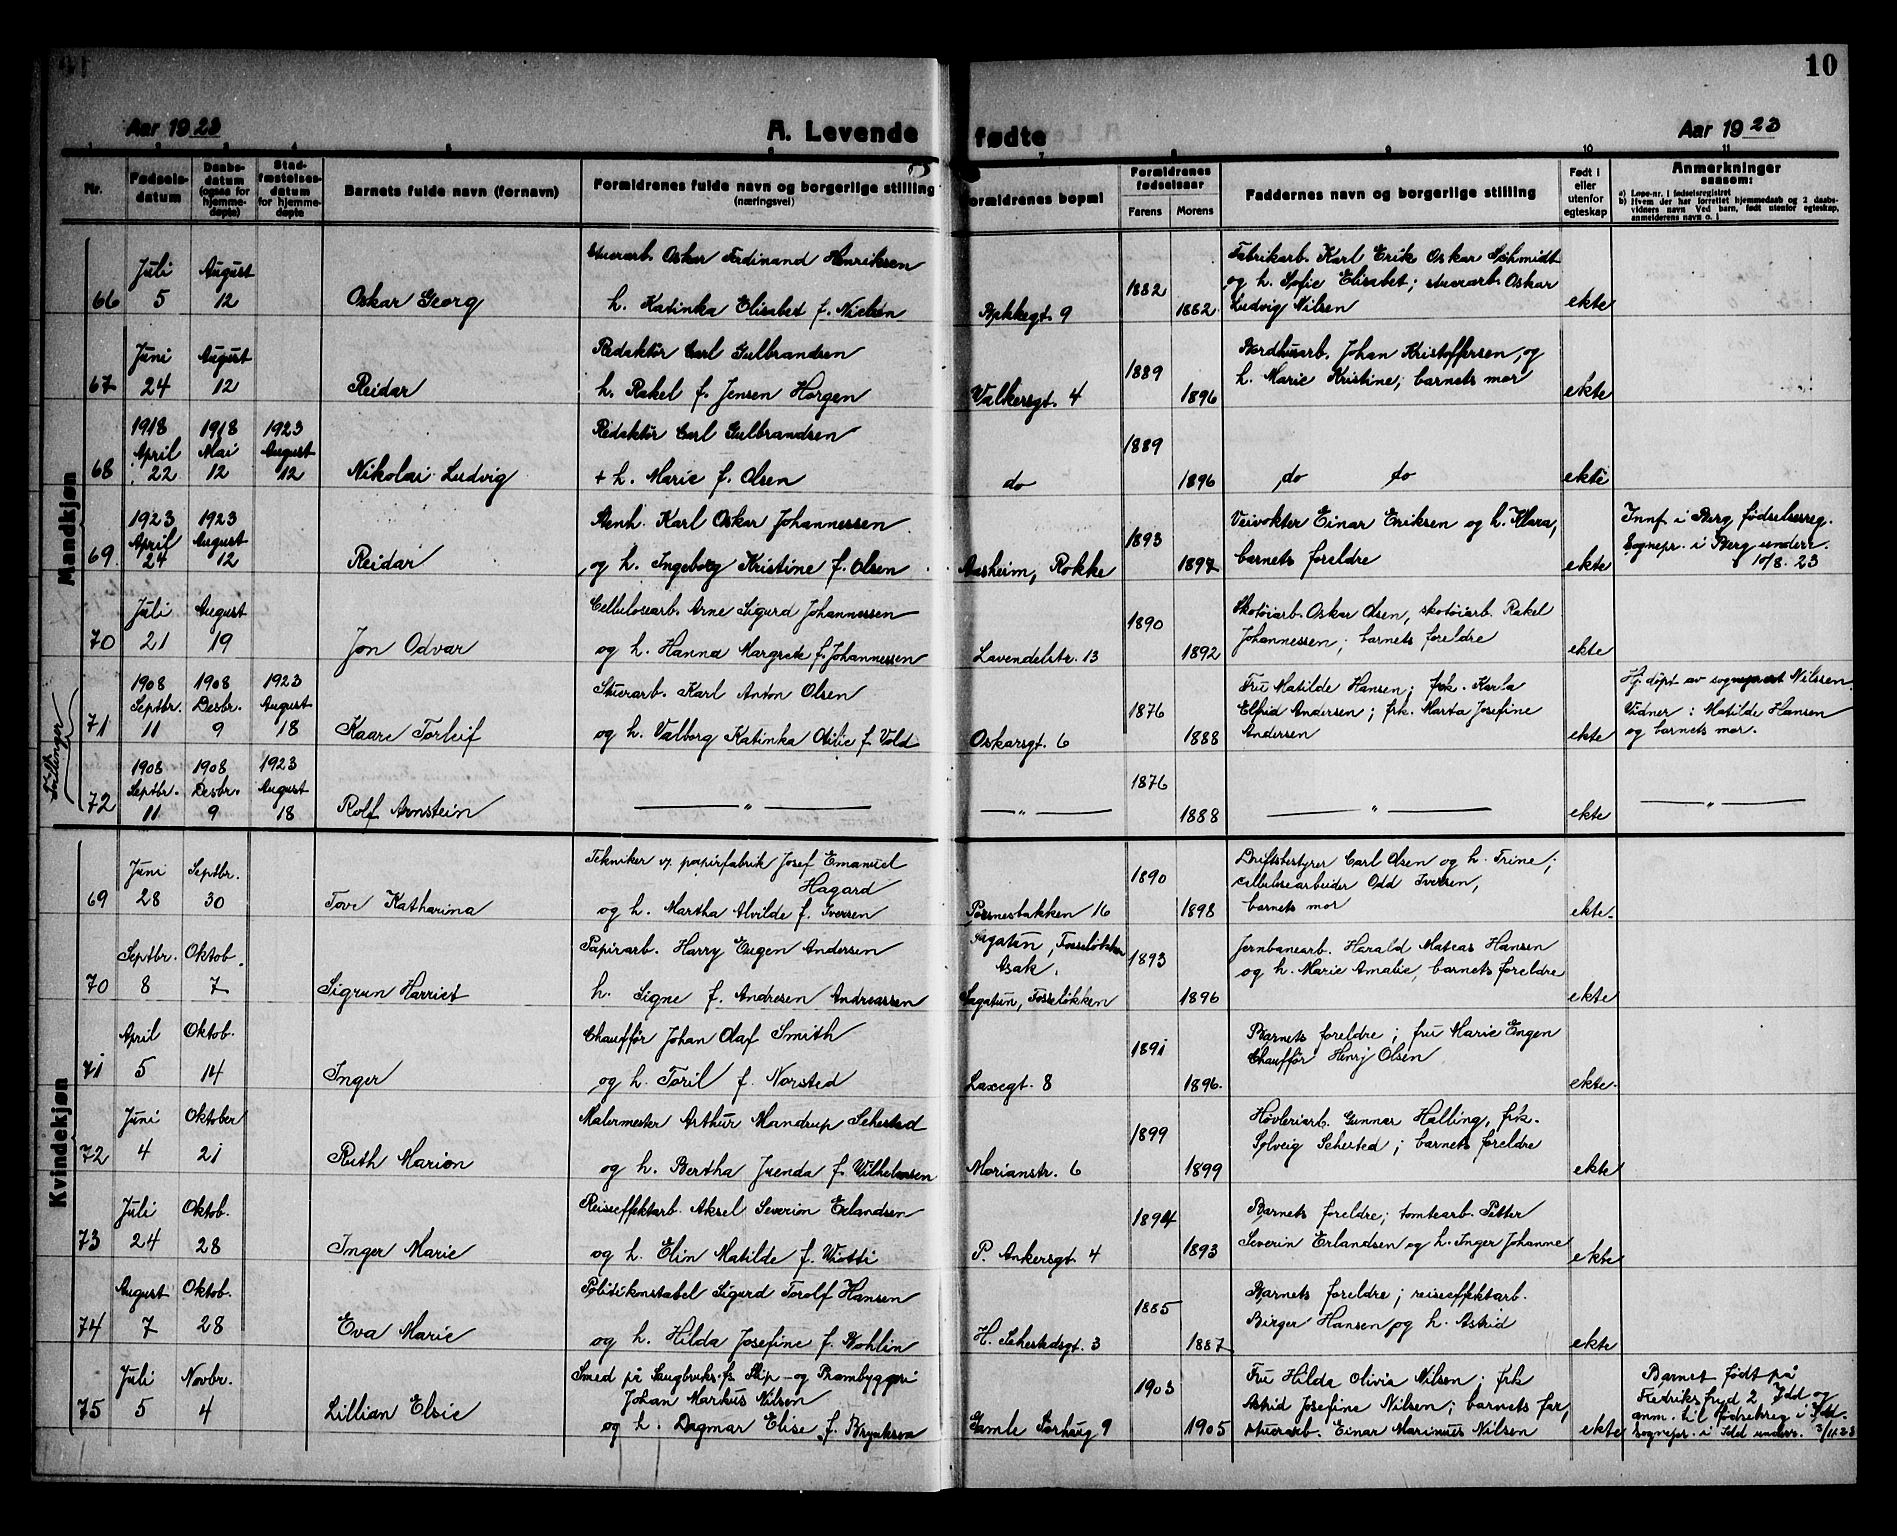 10
Aar 1923
A. Levende fødte
Aar 1923
Nr.
Fødsels-
datum
Daabs-
datum
(ogsaa for
hjemme-
døpte)
Stad-
fæstelses-
datum
for hjemme-
døpte
Barnets fulde navn (fornavn)
Formldrenes fulde navn og borgerlige stilling
(næringsvei)
Formldrenes bopæl
Formldrenes
fødselsaar
Farens Morens
Faddernes navn og borgerlige stilling
Født i
eller
utenfor
egteskap
Anmerkninger
saasom:
a) Løpe-nr. i fødselsregistret
b) Hvem der har forrettet hjemmedaab og 2 daabs-
vidners navn Ved barn, født utenfor egteskap,
anmelderens navn o. l
7 8 9 10 11
Mandkjøn
Juli August
66 5 12 Oskar Georg
Stuerarb. Oskar Ferdinand Henriksen
h. Katinka Elisabet f. Nielsen
Bekkegt. 9
1882
1882
Fabrikarb. Karl Erik Oskar Schmidt
og h. Sofie Elisabet; stuerarb. Oskar
Ludvig Nilsen
ekte
Juni August
67 24 12 Reidar
Redaktør Carl Gulbrandsen
h. Rakel f. Jensen Horgen
Valkersgt. 4
1889
1896
Bordhusarb. Johan Kristoffersen, og
h. Marie Kristine; barnets mor
ekte
1918 1918 1923
April Mai August
68 22 12 12 Nikolai Ludvig
Redaktør Carl Gulbrandsen
+ h. Marie f. Olsen
do
1889
1896
do do
ekte
1923 1923
April August
69. 24 12 Reidar
Aenh. Karl Oskar Johannessen
og h. Ingeborg Kristine f. Olsen
Aasheim, Rokke
1893
1897
Veivokter Einar Eriksen og h. Klara,
barnets foreldre
ekte
Innf. i Berg fødselsreg.
Sognepr. i Berg underr.
10/8. 23
Juli August
70 21 19 Jon Odvar
Cellulosearb. Arne Sigurd Johannessen
og h. Hanna Margrete f. Johannessen
Lavendelstr. 13
1890
1892
Skotøiarb. Oskar Olsen, skotøiarb. Rakel
Johannessen; barnets foreldre
ekte
Tvillinger
1908 1908 1923
Septbr. Desbr. August
71 11 9 18 Kaare Torleif
Stuerarb. Karl Anton Olsen
og h. Valborg Katinka Otilie f. Vold
Oskarsgt. 6
1876
1888
Fru Matilde Hansen; frk. Karla
Elfrid Andersen; frk. Marta Josefine
Andersen
ekte
Hj. døpt av sogneprest Nilssen.
Vidner: Matilde Hansen
og barnets mor.
1908 1908 1923
Septbr. Desbr. August
72 11 9 18 Rolf Arnstein
— " —
— " —
1876
1888
— " —
ekte
— " —
Kvindekjøn
Juni Septbr.
69 28 30 Tove Katharina
Tekniker v. papirfabrik Josef Emanuel
Hagard
og h. Martha Alvilde f. Iversen
Porsnesbakken 16
1890
1898
Driftsbestyrer Carl Olsen og h. Trine;
cellulosearbeider Odd Iversen,
barnets mor
ekte.
Septbr. Oktob.
70 8 7 Sigrun Harriet
Papirarb. Harry Eugen Andersen
h. Signe f. Andresen Andreassen
Sagatun, Fosseløkken
Asak.
Sagatun, Fosseløkken
1893
1896
Jernbanearb. Harald Mateas Hansen
og h. Marie Amalie, barnets foreldre
ekte
April Oktob.
71 5 14 Inger
Chauffør Johan Olaf Smith
og h. Toril f. Norsted
Laxegt. 8
1891
1896.
Barnets foreldre; fru Marie Engen
Chauffør Henrj Olsen
ekte.
Juni Oktober
72 4 21 Ruth Marion
Malermester Arthur Mandrup Sehested
og h. Bertha Juenda f. Wilhelmsen
Marianstr. 6
1899
1899
Høvleriarb. Gunnar Halling, frk.
Solveig Sehested; barnets foreldre
ekte
Juli Oktob.
73 24 28 Inger Marie
Reiseeffektarb. Aksel Severin Erlandsen
og h. Elin Matilde f. Viotti
P. Ankersgt. 4
1894
1893
Barnets foreldre; tomtearb. Petter
Severin Erlandsen og h. Inger Johanne
ekte
August Oktob.
74 7 28 Eva Marie
Politikonstabel Sigurd Torolf Hansen
og h. Hilda Josefine f. Bohlin
H. Sehestedsgt. 3
1885
1887
Barnets foreldre; reiseeffektarb.
Birger Hansen og h. Astrid
ekte
Juli Novbr.
75 5 4 Lillian Elsie
Smed på Saugbruks.f.s Skip- og Prambyggeri
Johan Markus Nilsen
og h. Dagmar Elise f. Brynksen
Gamle Sørhaug 9
1903
1905
Fru Hilda Olivia Nilsen; frk
Astrid Josefine Nilsen; barnets far,
stuerarb. Einar Marinius Nilsen
ekte
Barnet født på
Fredriksfryd 2, Idd og
anm. til fødselsreg i Idd.
Sognepr. i Idd underr. 3/11.23